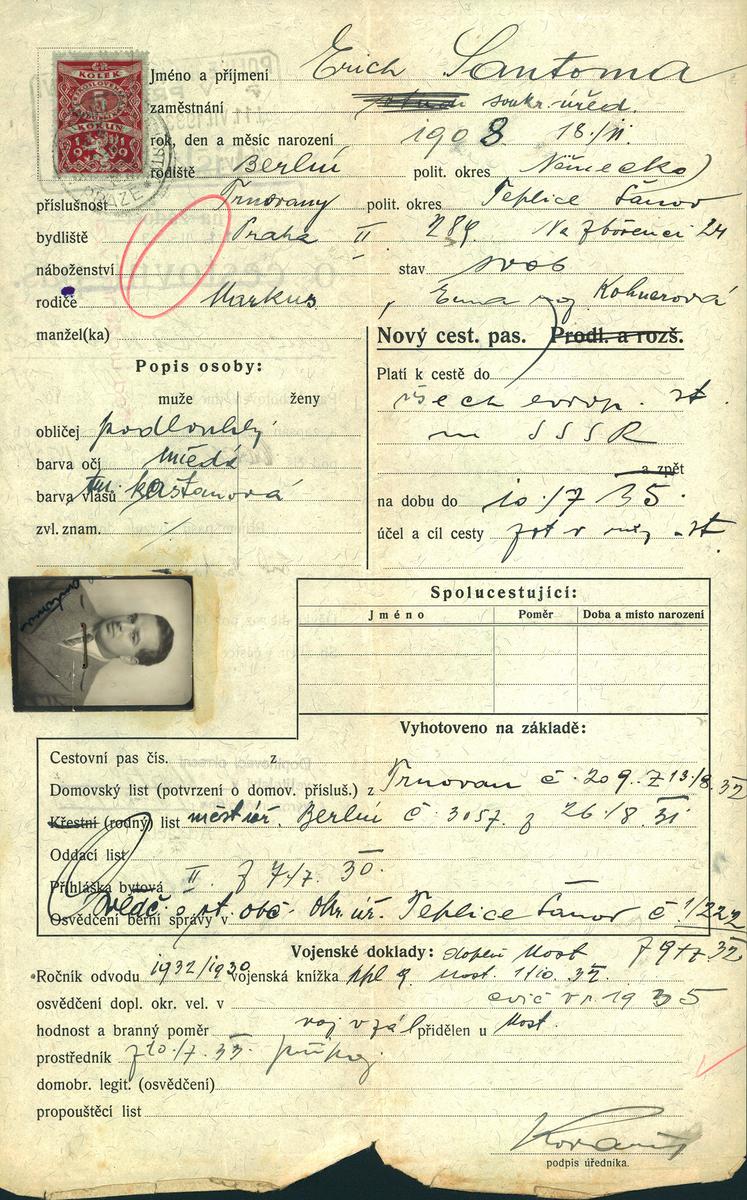 KOLEK
KORUN
1919
Jméno a příjmení Erich Santoma
zaměstnání soukr. úřed.
rok, den a měsíc narození 1908 18./II.
rodiště Berlín polit. okres Německo
příslušnost Trnovany polit. okres Teplice Šanov
bydliště Praha II 289 Na Zbořenci 24
náboženství stav svob
rodiče Markus, Ema roz Kohnerová
manžel(ka)
Nový cest. pas. Prodl. a rozš.
Popis osoby:
muže ženy
obličej podlouhlý
barva očí hnědá
barva vlasů tm. kaštanová
zvl. znam. /
Platí k cestě do
všech evrop. st.
SSSR
a zpět
na dobu do 10./7 35.
účel a cíl cesty
Spolucestující:
Jméno Poměr Doba a místo narození
Vyhotoveno na základě:
Cestovní pas čís. z
Domovský list (potvrzení o domov. přísluš.) z Trnovan č. 209. z 13./8. 32
Křestní (rodný) list Berlín č. 3057 z 26./8. 31
Oddací list
Přihláška bytová II. z 7./7. 30.
Osvědčení berní správy v
osvědč. o st. obč. Okr. úř. Teplice Šanov č. 1/222
Vojenské doklady: doplň Most
Ročník odvodu 1932/1930 vojenská knižka Most 1/10. 32.
osvědčení dopl. okr. vel. v cvič v r. 1935
hodnost a branný poměr voj v zál přidělen u Most.
prostředník z 10./7. 33.
domobr. legit. (osvědčení)
propouštěcí list
podpis úředníka.